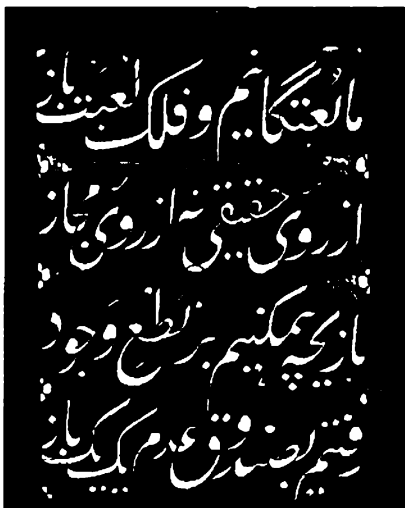 ما لعبتگانیم و فلک لعبت باز
از روی حقیقتی نه از روی مجاز
بازیچه همیکنیم بر نطع وجود
رفتیم بصندوق عدم یک یک باز